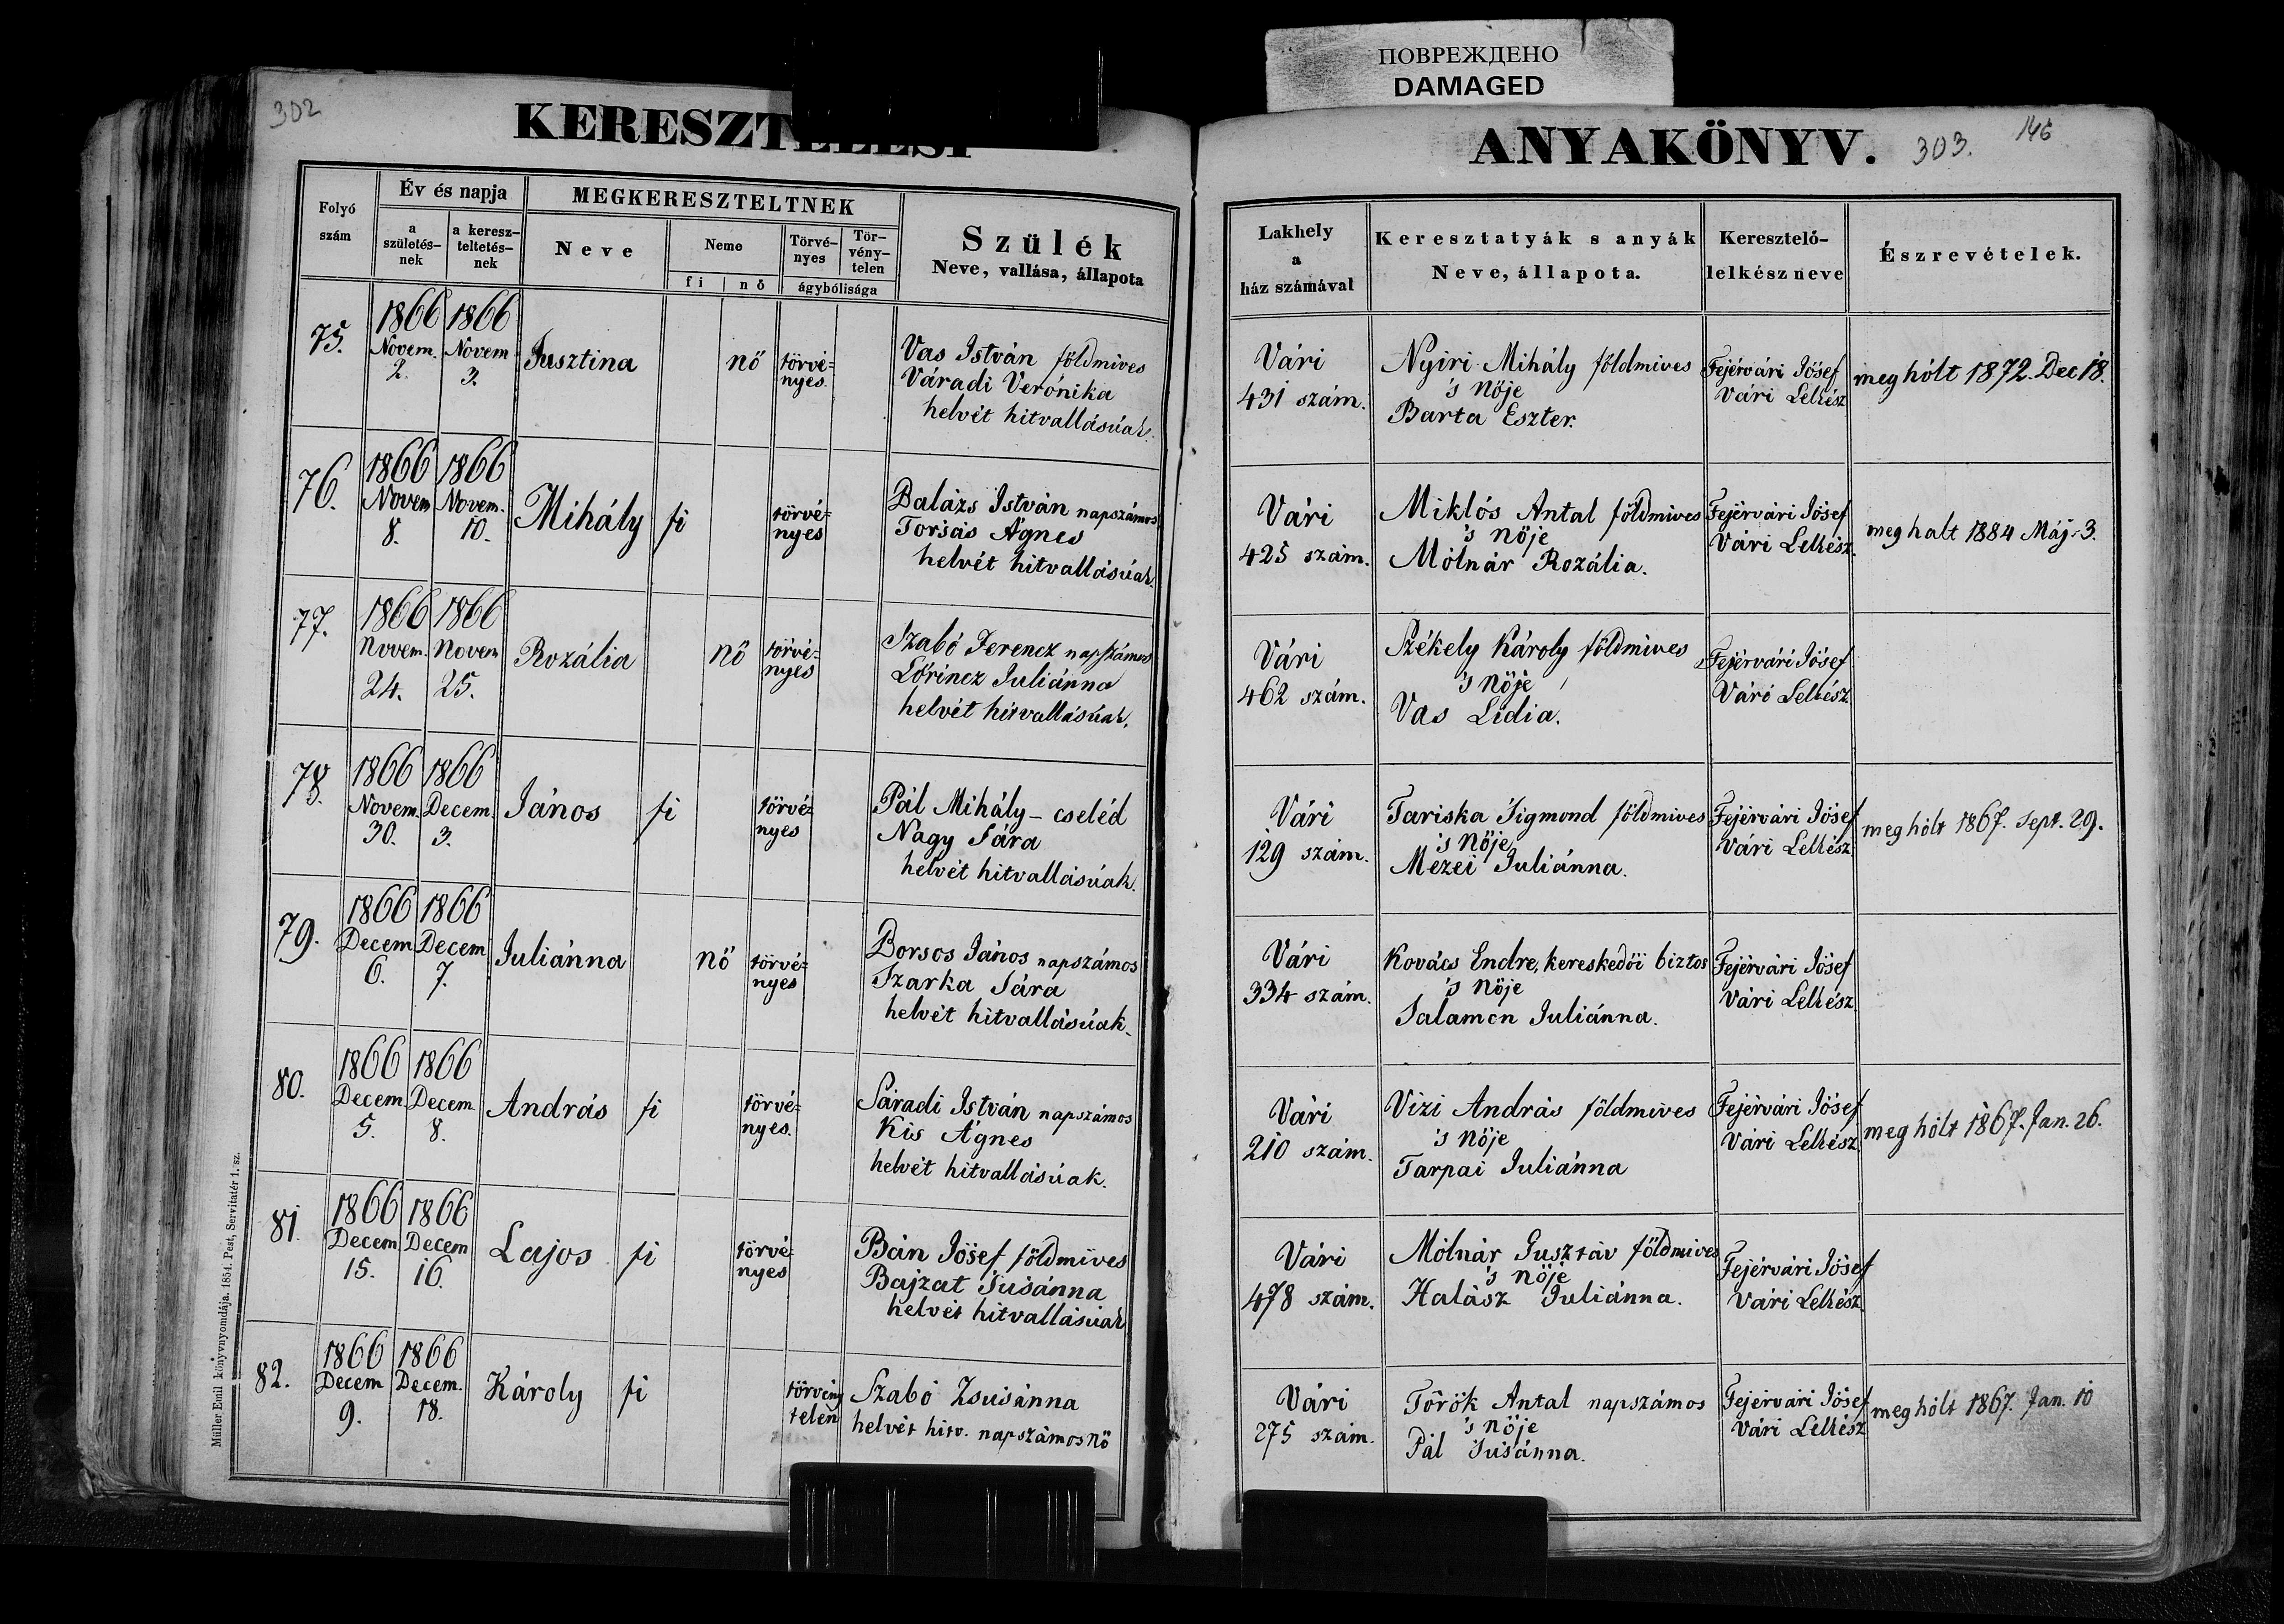 ПОВРЕЖДЕНО
DAMAGED
302
KERESZTELESI
ANYAKÖNYV.
303.
146
Folyó szám
Év és napja
a születés-nek
a keresz-teltetés-nek
MEGKERESZTELTNEK
Neve
Neme
fi
nő
Törvé-nyes
Tör-vény-telen
ágybólisága
Szülék
Neve, vallása, állapota
Lakhely
a
ház számával
Keresztatyák s anyák
Neve, állapota.
Keresztelő-
lelkész neve
Észrevételek.
75.
1866 Novem. 2.
1866 Novem 3.
Jusztina
nő
törvé=
nyes.
Vas István földmives
Váradi Verónika
helvét hitvallásúak.
Vári
431 szám.
Nyiri Mihály földmives
's nője
Barta Eszter.
Fejérvári Jósef
Vári Lelkész
meg hólt 1872. Dec 18.
76.
1866 Novem 8.
1866 Novem. 10.
Mihály
fi
törvé=
nyes
Balázs István napszámos
Torsás Ágnes
helvét hitvallásúak.
Vári
425 szám.
Miklós Antal földmives
's nője
Mólnár Rozália.
Fejérvári Jósef
Vári Lelkész.
meg halt 1884 Máj. 3.
77.
1866 Novem. 24.
1866 Novem 25.
Rozália
nő
törvé=
nyes
Szabó Ferencz napszámos
Lőrincz Juliánna
helvét hitvallásúak.
Vári
462 szám.
Székely Károly földmives
's nője
Vas Lidia.
Fejérvári Jósef
Vári Lelkész.
78.
1866 Novem. 30.
1866 Decem. 3.
János
fi
törvé=
nyes
Pál Mihály – cseléd
Nagy Sára
helvét hitvallásúak.
Vári
129 szám.
Tariska Sigmond földmives
's nője
Mezei Juliánna.
Fejérvári Jósef
Vári Lelkész
meg hólt 1867. Sept. 29.
79.
1866 Decem 6.
1866 Decem 7.
Juliánna
nő
törvé=
nyes
Borsos János napszámos
Szarka Sára
helvét hitvallásúak.
Vári
334 szám.
Kovács Endre, kereskedői biztos
's nője
Salamon Juliánna.
Fejérvári Jósef
Vári Lelkész.
80.
1866 Decem. 5.
1866 Decem. 8.
András
fi
törvé=
nyes.
Sáradi István napszámos
Kis Ágnes
helvét hitvallásúak.
Vári
210 szám.
Vizi András földmives
's nője
Tarpai Juliánna
Fejérvári Jósef
Vári Lelkész
meg hólt 1867. Jan. 26.
81.
1866 Decem 15.
1866 Decem 16.
Lajos
fi
törvé=
nyes
Bán Jósef földmives
Bajzat Susánna
helvét hitvallásúak
Vári
478 szám.
Mólnár Gusztáv földmives
's nője
Halász Juliánna.
Fejérvári Jósef
Vári Lelkész.
82.
1866 Decem 9.
1866 Decem. 18.
Károly
fi
törvény
telen
Szabó Zsusánna
helvét hitv. napszámos nő
Vári
275 szám.
Török Antal napszámos
's nője
Pál Susánna.
Fejérvári Jósef
Vári Lelkész
meg hólt 1867. Jan. 10
Müller Emil könyvnyomdája. 1854. Pest, Servitatér 1. sz.